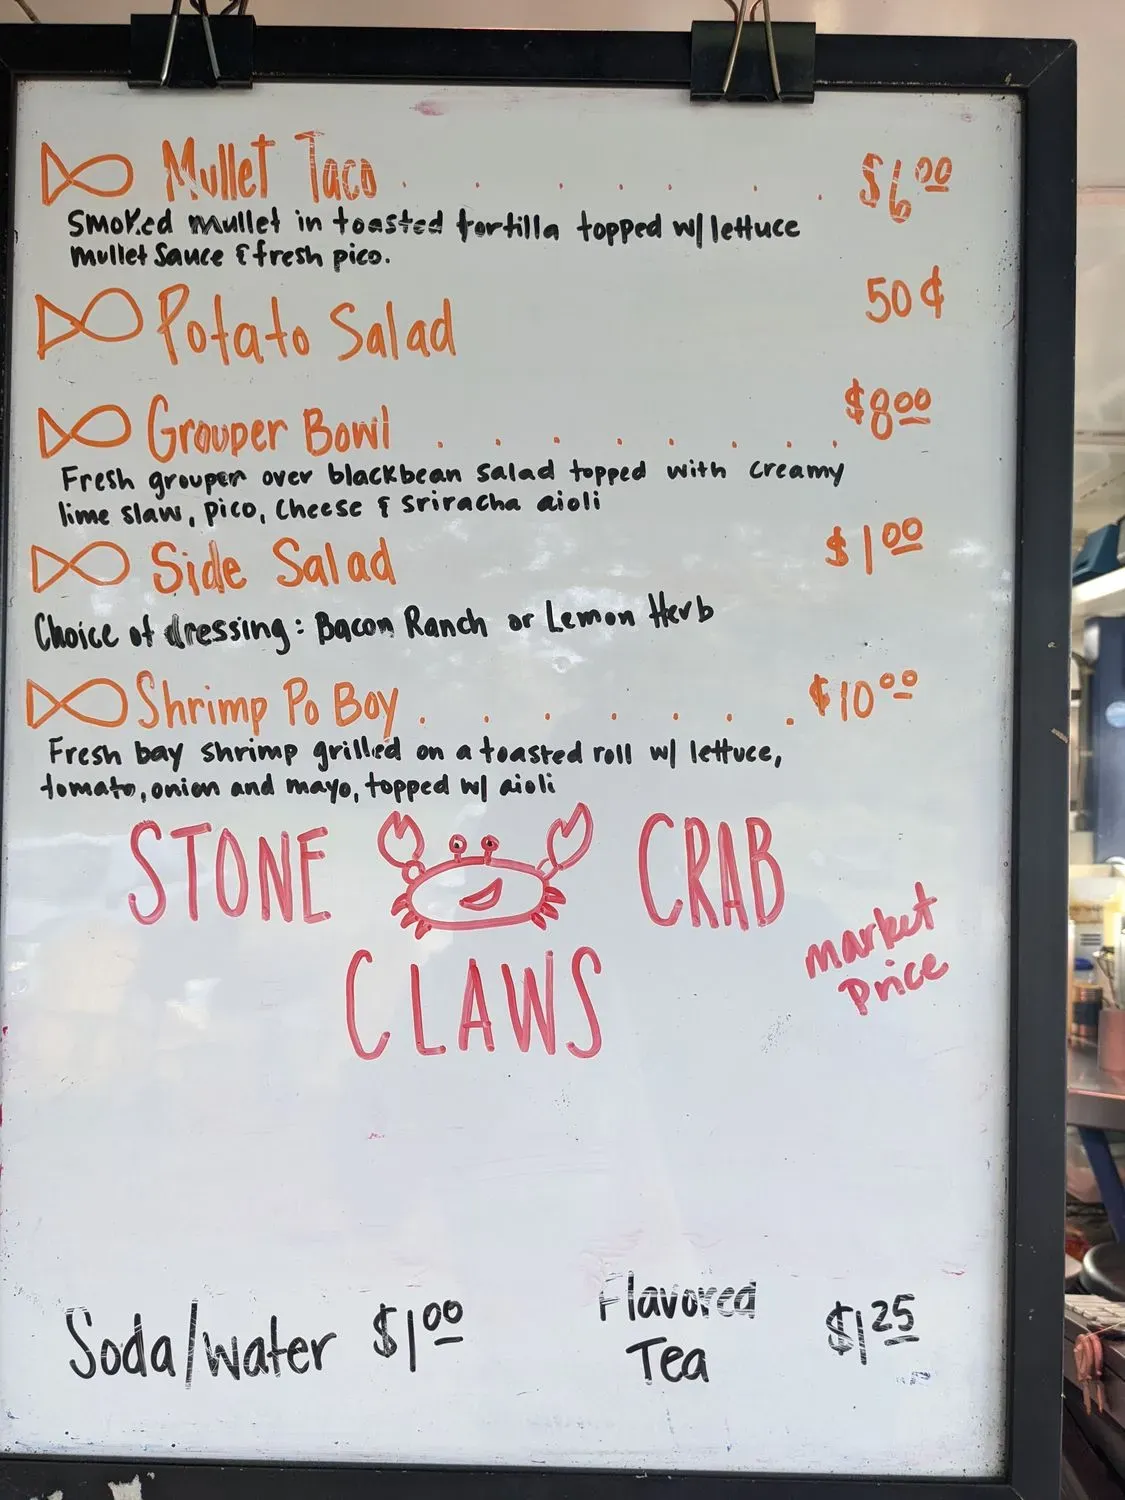 Mullet Taco . . . . . . . $6.00
Smoked mullet in toasted tortilla topped w/ lettuce
mullet Sauce & fresh pico.
Potato Salad 50¢
Grouper Bowl . . . . . . . . $8.00
Fresh grouper over blackbean salad topped with creamy
lime slaw, pico, cheese & sriracha aioli
Side Salad $1.00
Choice of dressing: Bacon Ranch or Lemon Herb
Shrimp Po Boy . . . . . . . $10.00
Fresh bay shrimp grilled on a toasted roll w/ lettuce,
tomato, onion and mayo, topped w/ aioli
STONE CRAB
CLAWS
market
price
Soda/water $1.00
Flavored
Tea $1.25